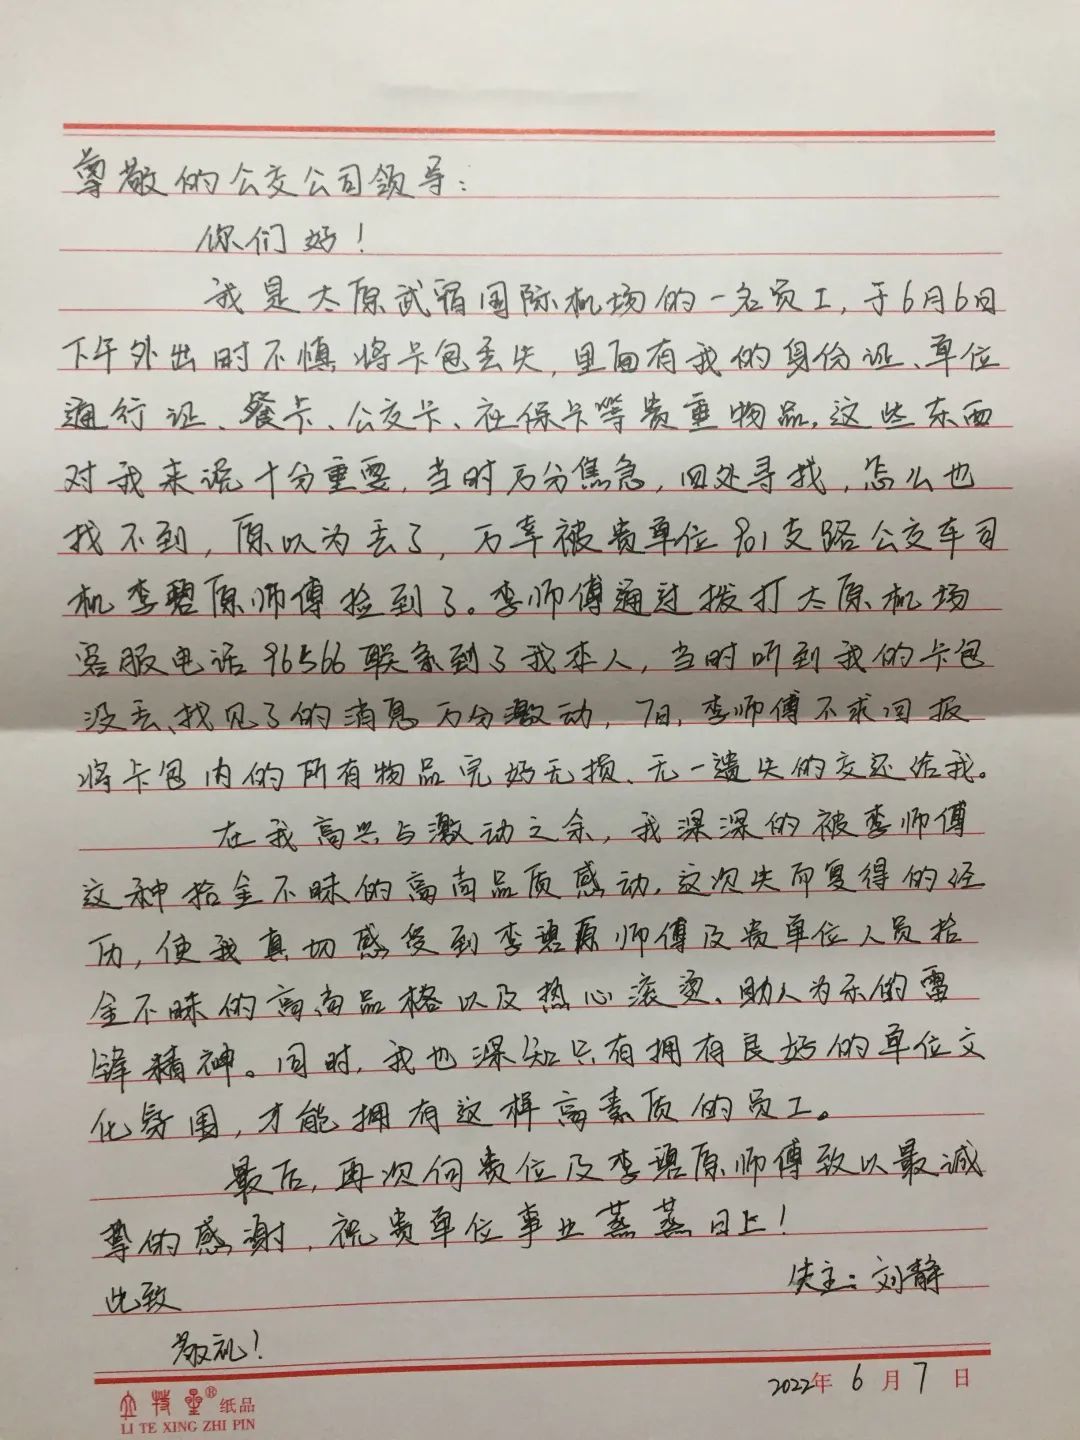 尊敬的公交公司领导：
你们好！
我是太原武宿国际机场的一名员工，于6月6日
下午外出时不慎将卡包丢失，里面有我的身份证、单位
通行证、餐卡、公交卡、社保卡等贵重物品，这些东西
对我来说十分重要，当时万分焦急，四处寻找，怎么也
找不到，原以为丢了，万幸被贵单位901支路公交车司
机李碧原师傅捡到了。李师傅通过拨打太原机场
客服电话96566联系到了我本人，当时听到我的卡包
没丢、找见了的消息万分激动，7日，李师傅不求回报
将卡包内的所有物品完好无损、无一遗失的交还给我。
在我高兴与激动之余，我深深的被李师傅
这种拾金不昧的高尚品质感动，这次失而复得的经
历，使我真切感受到李碧原师傅及贵单位人员拾
金不昧的高尚品格以及热心滚烫、助人为乐的雷
锋精神。同时，我也深知只有拥有良好的单位文
化氛围，才能拥有这样高素质的员工。
最后，再次向贵位及李碧原师傅致以最诚
挚的感谢，祝贵单位事业蒸蒸日上！
失主：刘静
此致
敬礼！
2022年6月7日
立特星®纸品
LI TE XING ZHI PIN